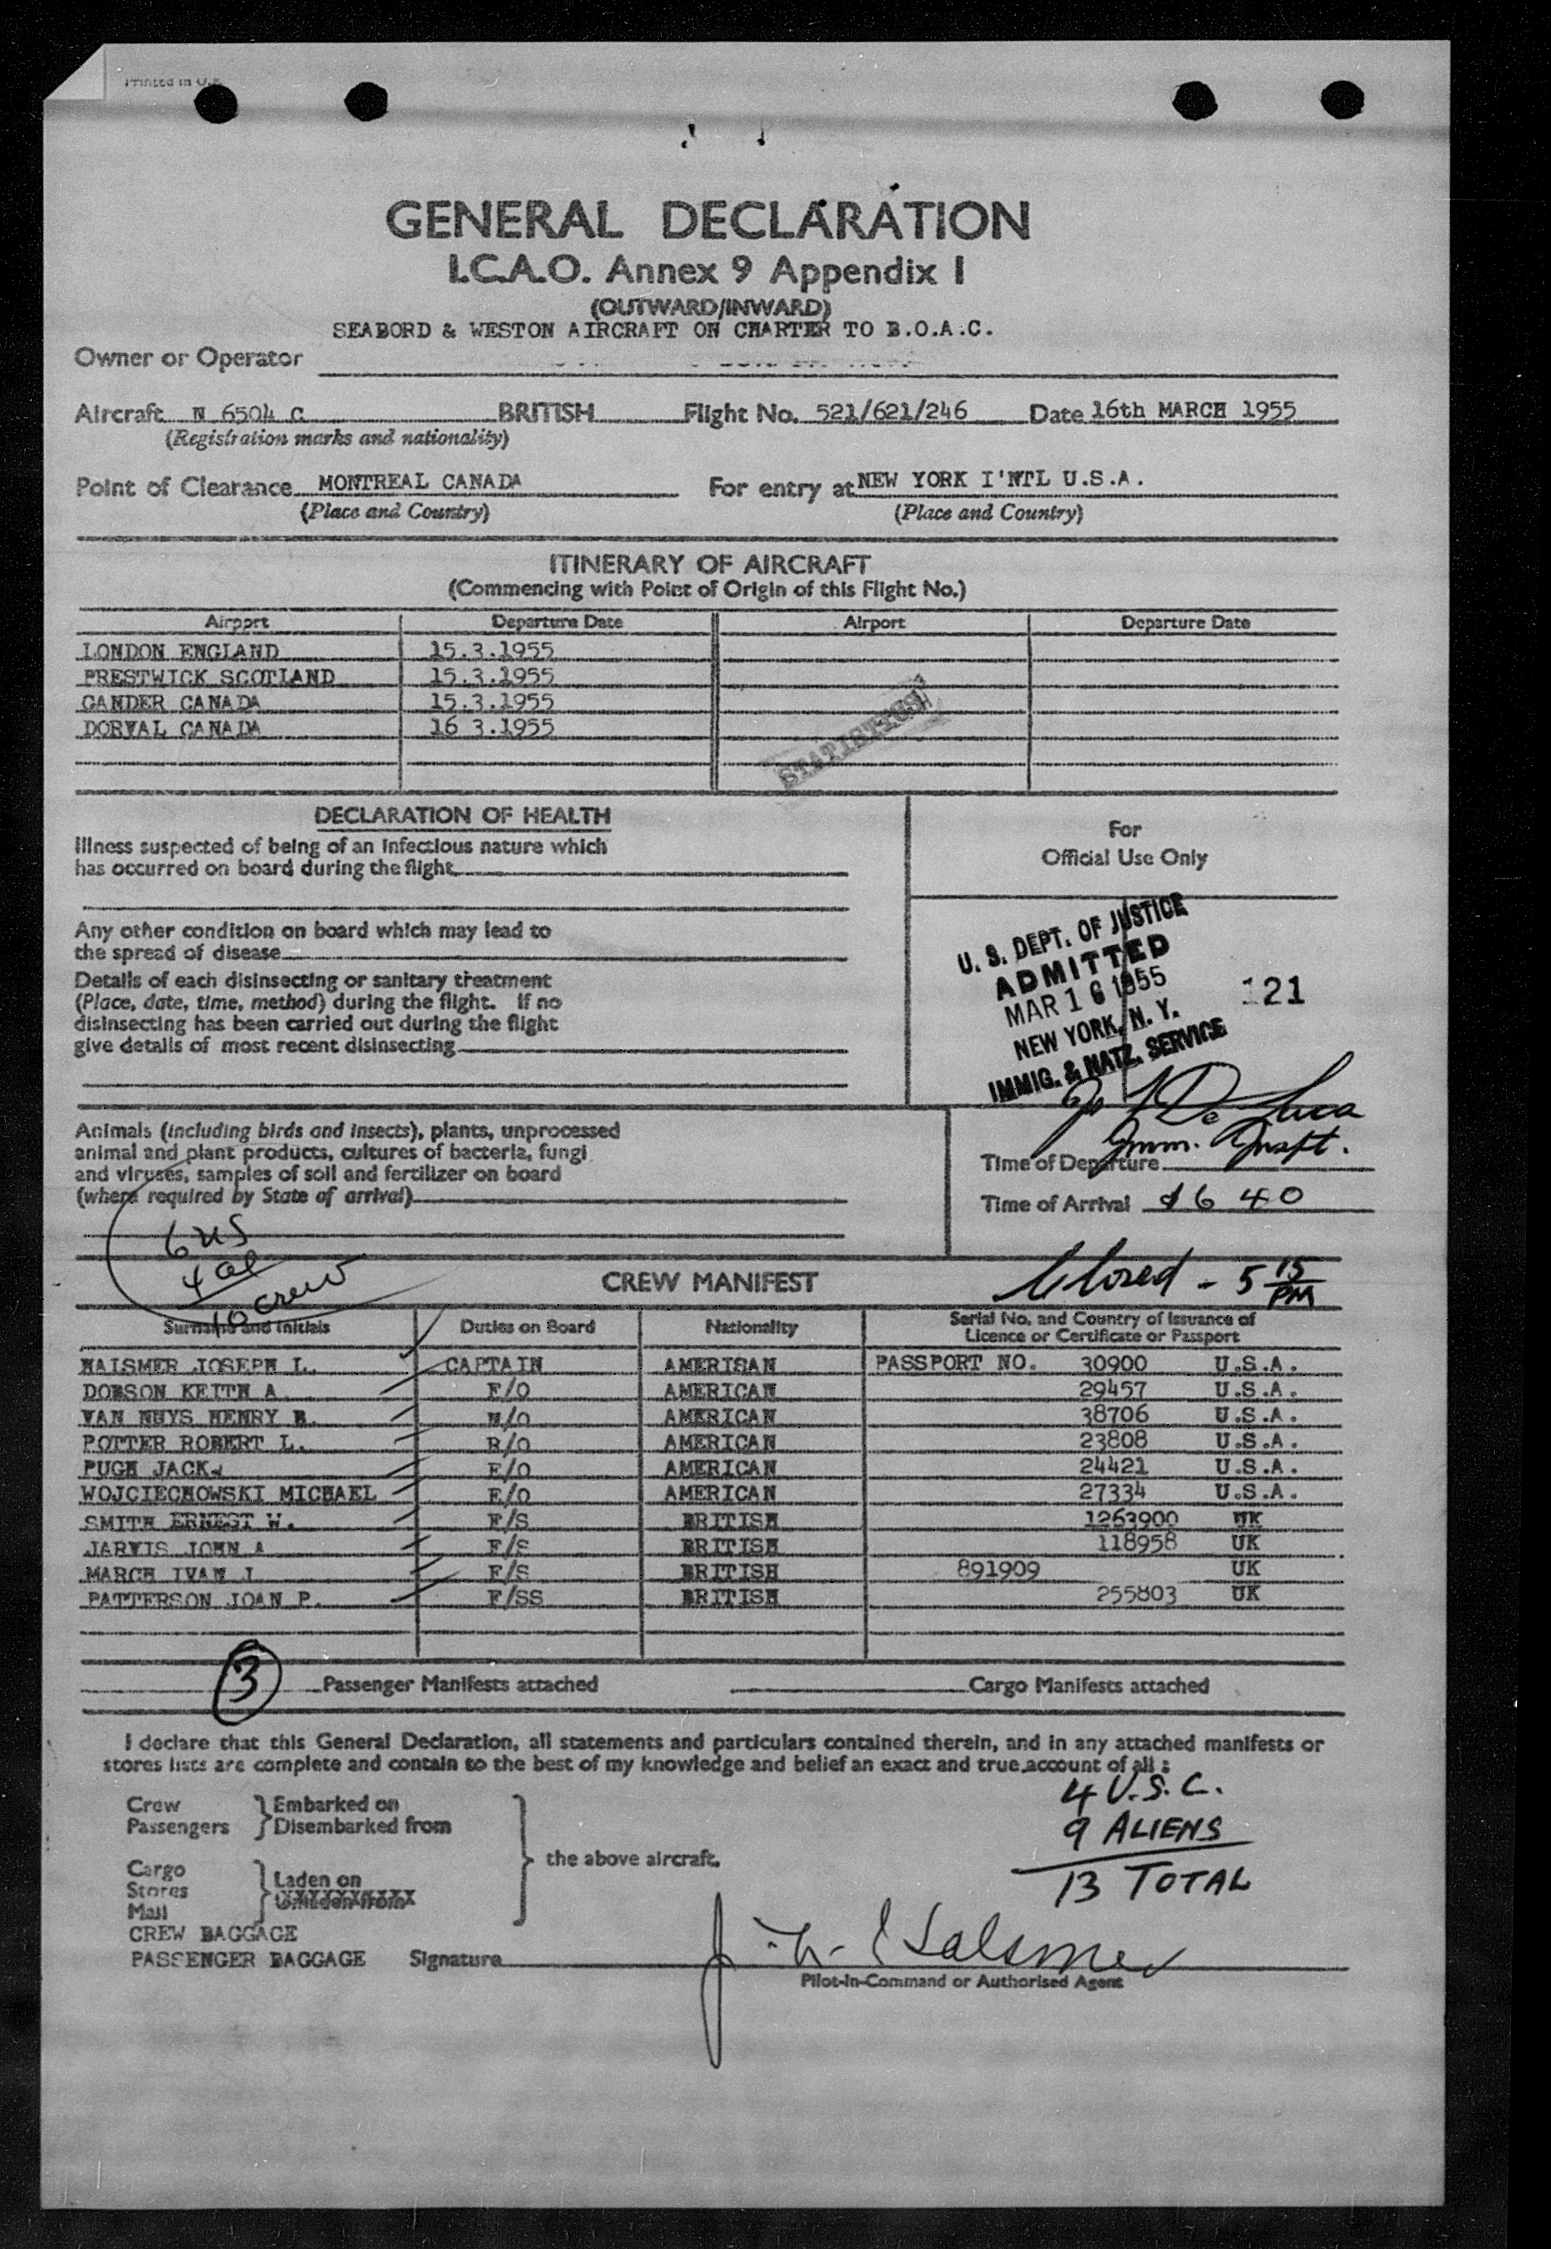 Printed in U.K.
GENERAL DECLARATION
I.C.A.O. Annex 9 Appendix I
(OUTWARD/INWARD)
SEABORD & WESTON AIRCRAFT ON CHARTER TO B.O.A.C.
Owner or Operator
Aircraft N 6504 C BRITISH Flight No. 521/621/246 Date 16th MARCH 1955
(Registration marks and nationality)
Point of Clearance MONTREAL CANADA For entry at NEW YORK I'NTL U.S.A.
(Place and Country) (Place and Country)
ITINERARY OF AIRCRAFT
(Commencing with Point of Origin of this Flight No.)
Airport Departure Date Airport Departure Date
LONDON ENGLAND 15.3.1955
PRESTWICK SCOTLAND 15.3.1955
GANDER CANADA 15.3.1955
DORVAL CANADA 16 3.1955
DECLARATION OF HEALTH
Illness suspected of being of an infectious nature which
has occurred on board during the flight
Any other condition on board which may lead to
the spread of disease
Details of each disinsecting or sanitary treatment
(Place, date, time, method) during the flight. If no
disinsecting has been carried out during the flight
give details of most recent disinsecting
For
Official Use Only
U. S. DEPT. OF JUSTICE
ADMITTED
MAR 16 1955
NEW YORK, N. Y.
IMMIG. & NATZ. SERVICE
121
De Luca
Imm. Inspt.
Animals (including birds and insects), plants, unprocessed
animal and plant products, cultures of bacteria, fungi
and viruses, samples of soil and fertilizer on board
(where required by State of arrival)
Time of Departure
Time of Arrival 1640
6 us
4 al
10 crew
CREW MANIFEST
Closed - 5 15 PM
Surname and Initials Duties on Board Nationality Serial No. and Country of Issuance of
Licence or Certificate or Passport
HALSMER JOSEPH L. CAPTAIN AMERISAN PASSPORT NO. 30900 U.S.A.
DOBSON KEITH A F/O AMERICAN 29457 U.S.A.
VAN NUYS HENRY B. N/O AMERICAN 38706 U.S.A.
POTTER ROBERT L. R/O AMERICAN 23808 U.S.A.
PUGH JACK E/O AMERICAN 24421 U.S.A.
WOJCIECHOWSKI MICHAEL E/O AMERICAN 27334 U.S.A.
SMITH ERNEST W. F/S BRITISH 1263900 UK
JARVIS JOHN A F/S BRITISH 118958 UK
MARCH IVAN J F/S BRITISH 891909 UK
PATTERSON JOAN P. F/SS BRITISH 255803 UK
3 Passenger Manifests attached Cargo Manifests attached
I declare that this General Declaration, all statements and particulars contained therein, and in any attached manifests or
stores lists are complete and contain to the best of my knowledge and belief an exact and true account of all :
4 U.S.C.
9 ALIENS
13 TOTAL
Crew Embarked on
Passengers Disembarked from
the above aircraft.
Cargo Laden on
Stores
Mail
CREW BAGGAGE
PASSENGER BAGGAGE Signature
Pilot-in-Command or Authorised Agent